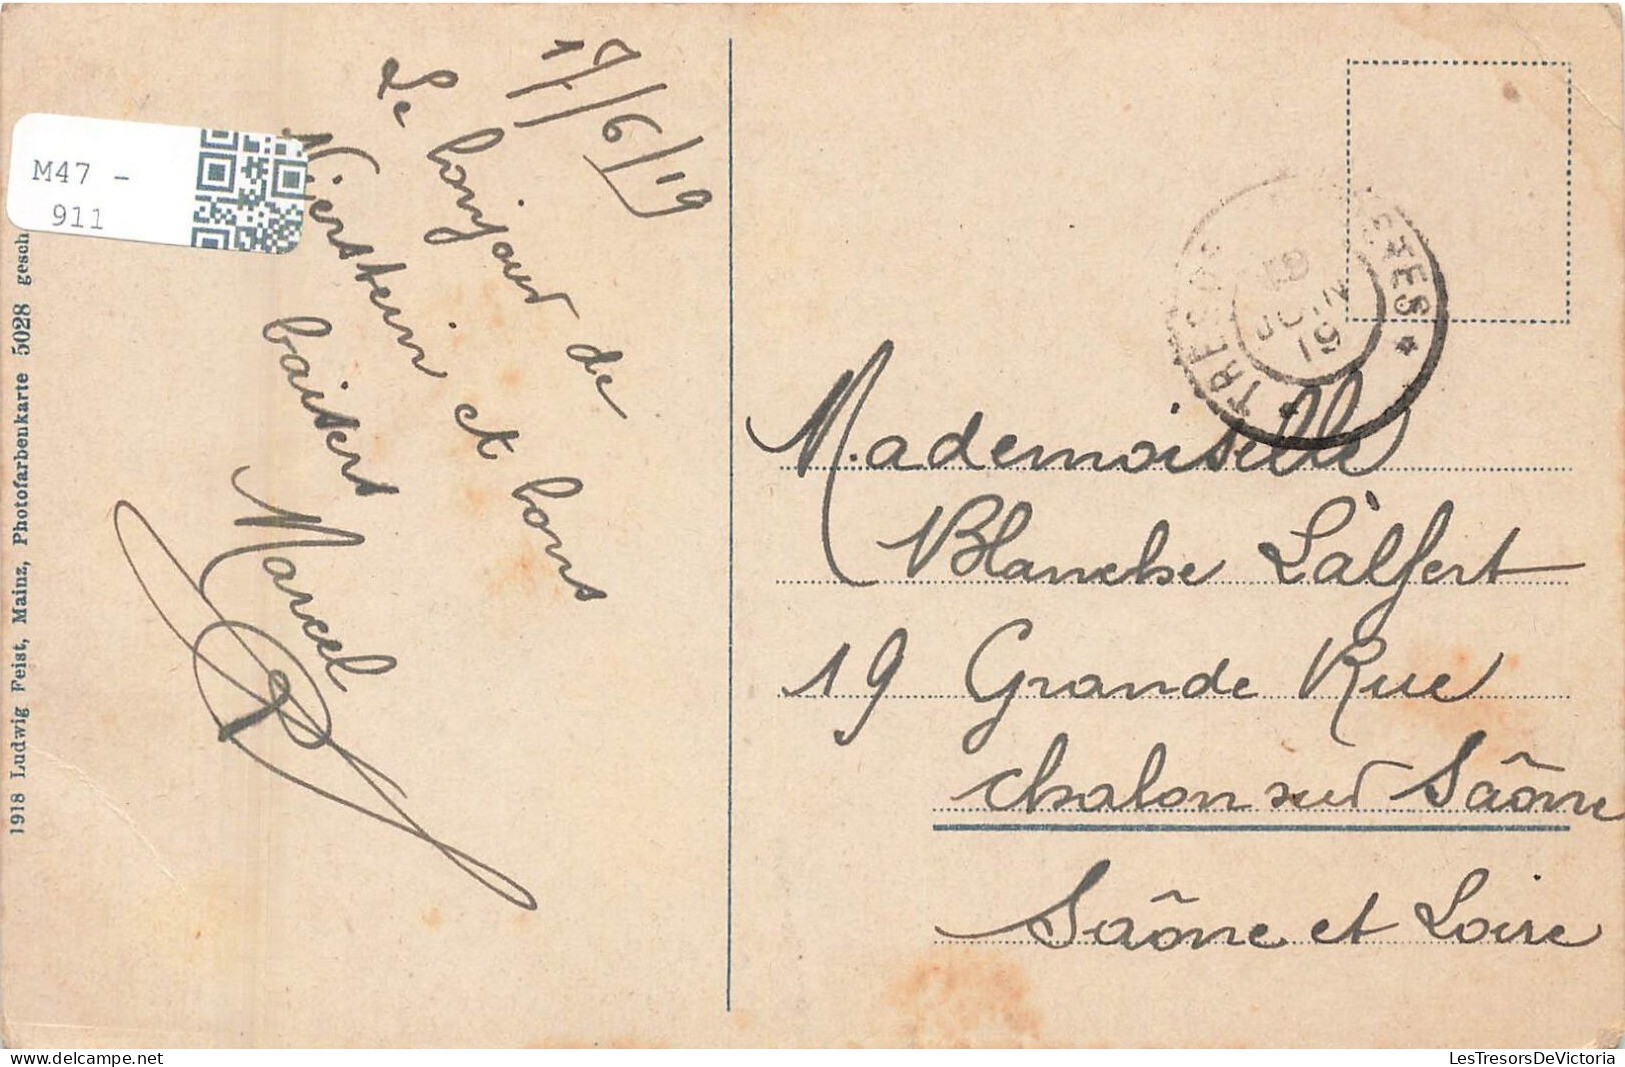 17/6/19
Le bonjour de
Nierstein et bons
baisers
Marcel
M47 -
911
1918 Ludwig Feist, Mainz, Photofarbenkarte 5028 gesch
TRESOR POSTES
19
JUIN
19
Mademoiselle
Blanche Lalfert
19 Grande Rue
Chalon sur Saône
Saône et Loire
delcampe.net
LesTresorsDeVictoria